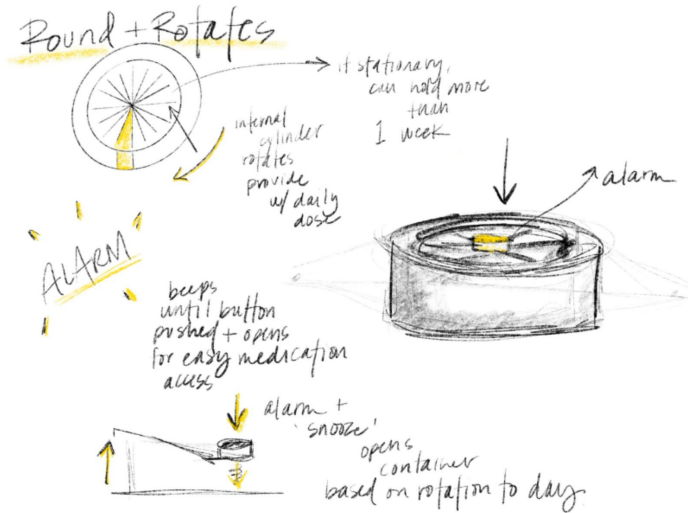 Round + Rotates
if stationary,
can hold more
than
1 week
internal
cylinder
rotates
provide
w/ daily
dose
alarm
ALARM
beeps
until button
pushed + opens
for easy medication
access
alarm +
'snooze'
opens
container
based on rotation to day